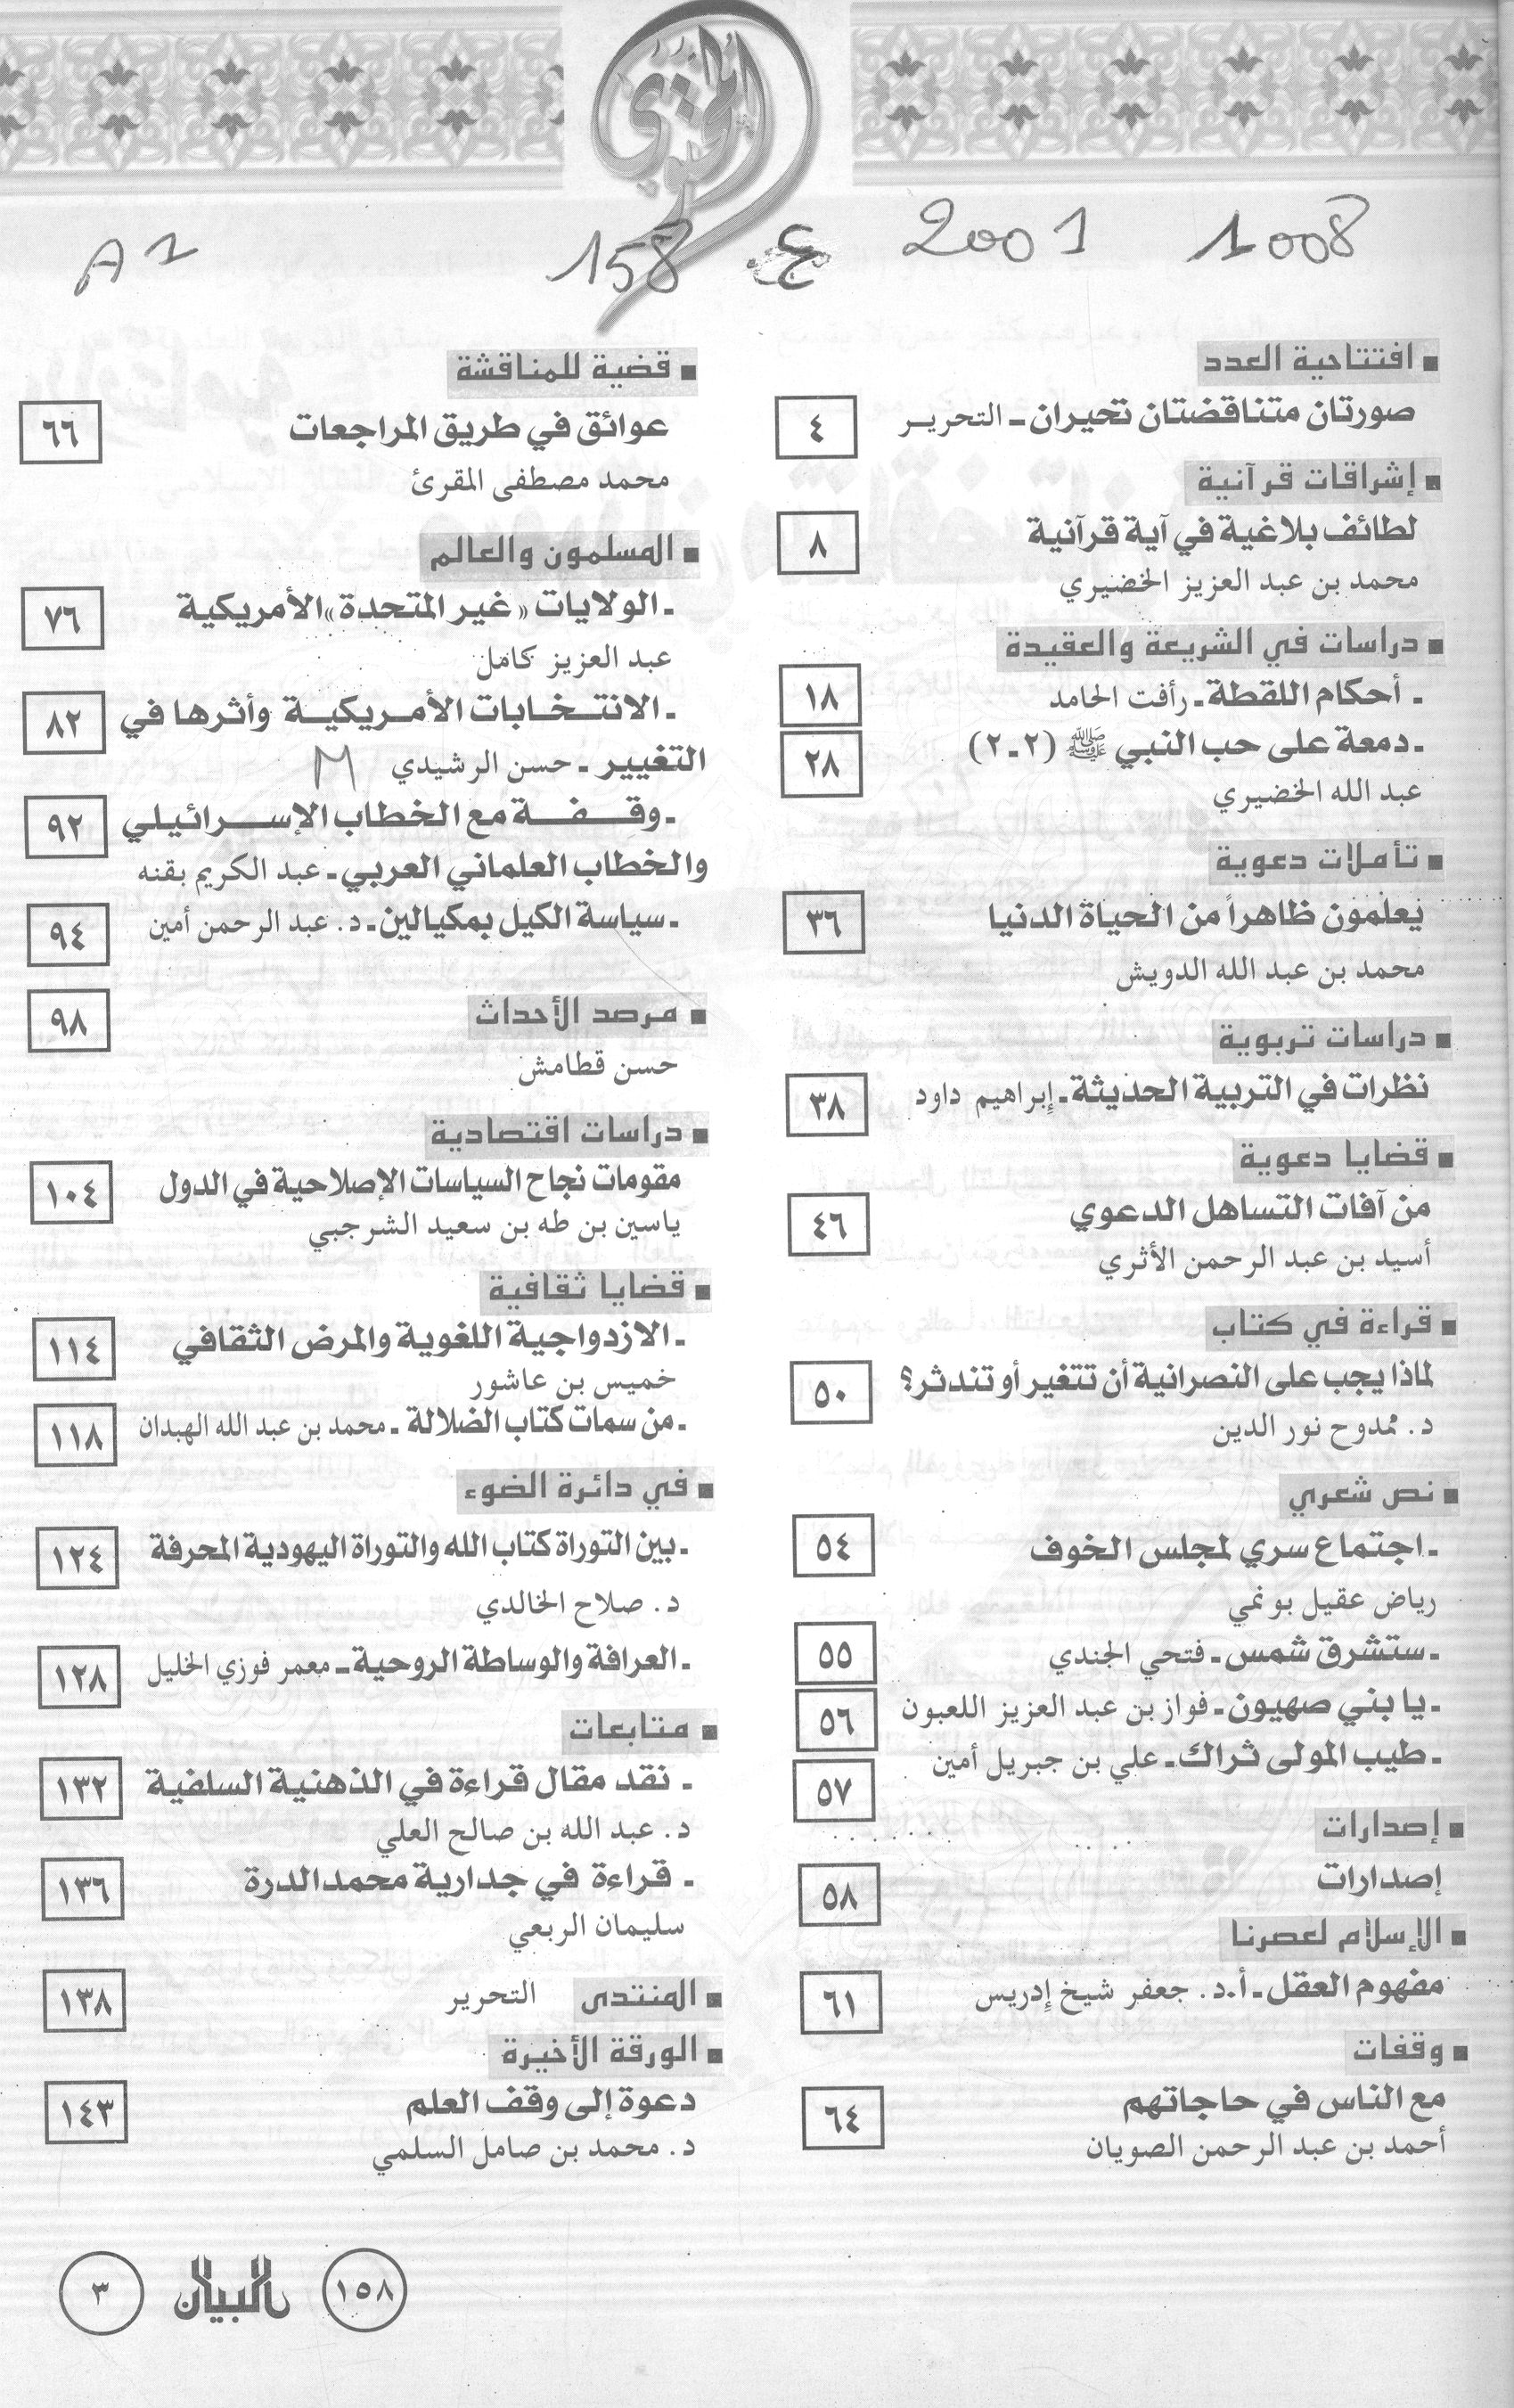 المحتوى
1008 2001 ع. 158 A1
افتتاحية العدد
صورتان متناقضتان تحيران ـ التحرير ٤
إشراقات قرآنية
لطائف بلاغية في آية قرآنية ٨
محمد بن عبد العزيز الخضيري
دراسات في الشريعة والعقيدة
ـ أحكام اللقطة ـ رأفت الحامد ١٨
ـ دمعة على حب النبي ﷺ (٢ـ٢) ٢٨
عبد الله الخضيري
تأملات دعوية
يعلمون ظاهراً من الحياة الدنيا ٣٦
محمد بن عبد الله الدويش
دراسات تربوية
نظرات في التربية الحديثة ـ إبراهيم داود ٣٨
قضايا دعوية
من آفات التساهل الدعوي ٤٦
أسيد بن عبد الرحمن الأثري
قراءة في كتاب
لماذا يجب على النصرانية أن تتغير أو تندثر؟ ٥٠
د. ممدوح نور الدين
نص شعري
ـ اجتماع سري لمجلس الخوف ٥٤
رياض عقيل بونمي
ـ ستشرق شمس ـ فتحي الجندي ٥٥
ـ يا بني صهيون ـ فواز بن عبد العزيز اللعبون ٥٦
ـ طيب المولى ثراك ـ علي بن جبريل أمين ٥٧
إصدارات
إصدارات ٥٨
الإسلام لعصرنا
مفهوم العقل ـ أ.د. جعفر شيخ إدريس ٦١
وقفات
مع الناس في حاجاتهم ٦٤
أحمد بن عبد الرحمن الصويان
قضية للمناقشة
عوائق في طريق المراجعات ٦٦
محمد مصطفى المقرئ
المسلمون والعالم
ـ الولايات «غير المتحدة» الأمريكية ٧٦
عبد العزيز كامل
ـ الانتخابات الأمريكية وأثرها في ٨٢
التغيير ـ حسن الرشيدي M
ـ وقفة مع الخطاب الإسرائيلي ٩٢
والخطاب العلماني العربي ـ عبد الكريم بقنه
ـ سياسة الكيل بمكيالين ـ د. عبد الرحمن أمين ٩٤
مرصد الأحداث ٩٨
حسن قطامش
دراسات اقتصادية
مقومات نجاح السياسات الإصلاحية في الدول ١٠٤
ياسين بن طه بن سعيد الشرجبي
قضايا ثقافية
ـ الازدواجية اللغوية والمرض الثقافي ١١٤
خميس بن عاشور
ـ من سمات كتاب الضلالة ـ محمد بن عبد الله الهبدان ١١٨
في دائرة الضوء
ـ بين التوراة كتاب الله والتوراة اليهودية المحرفة ١٢٤
د. صلاح الخالدي
ـ العرافة والوساطة الروحية ـ معمر فوزي الخليل ١٢٨
متابعات
ـ نقد مقال قراءة في الذهنية السلفية ١٣٢
د. عبد الله بن صالح العلي
ـ قراءة في جدارية محمد الدرة ١٣٦
سليمان الربعي
المنتدى التحرير ١٣٨
الورقة الأخيرة
دعوة إلى وقف العلم ١٤٣
د. محمد بن صامل السلمي
١٥٨ البيان ٣